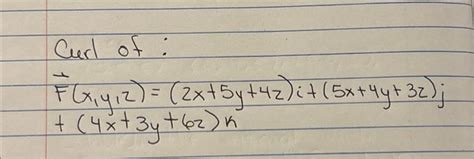 Curl of :
F⃗(x,y,z) = (2x+5y+4z)i+(5x+4y+3z)j
+ (4x+3y+6z)k